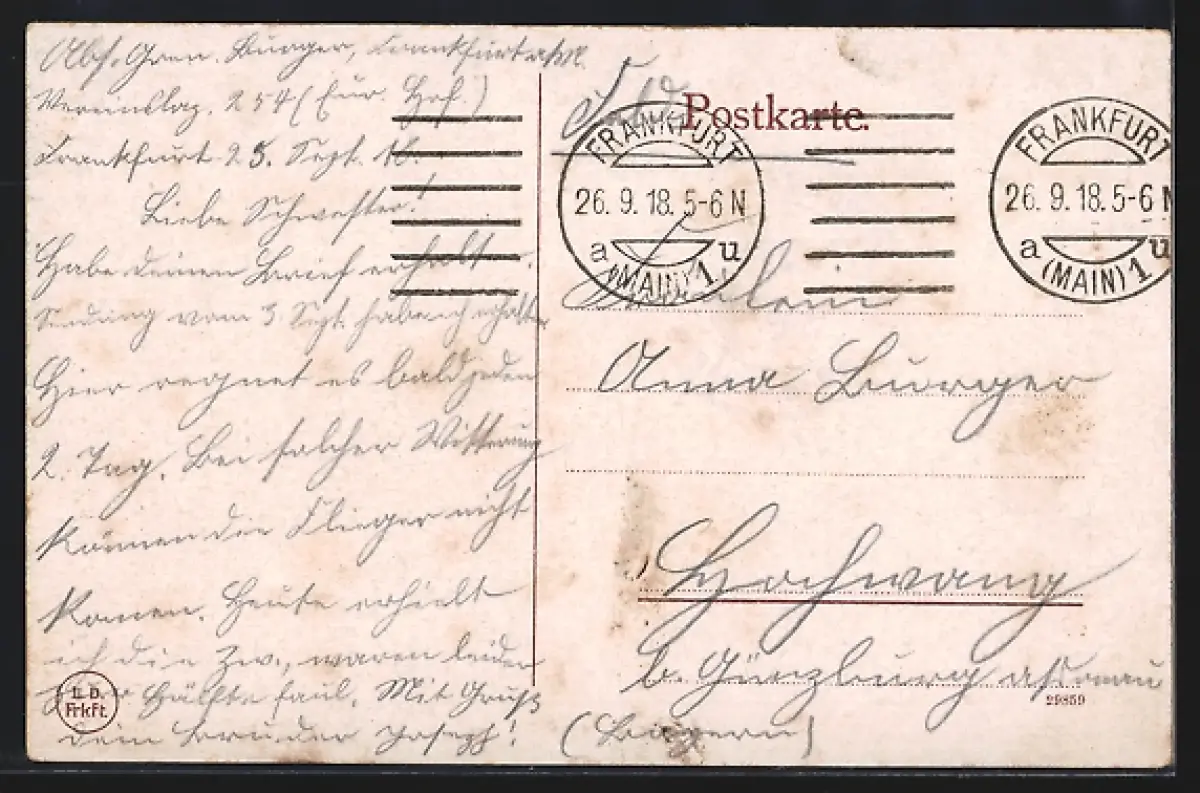 Abs. Gren. Burger, Frankfurt a/M.
Vereinslaz. 254 (Eur. Hof.)
Frankfurt 25. Sept. 18.
Liebe Schwester!
Habe deinen Brief erhalt.
Sendung vom 3. Sept. habe ich erhalten
Hier regnet es bald jeden
2. Tag. Bei solcher Witterung
können die Flieger nicht
komen. Heute erhielt
ich die Zw., waren leider
Hälfte faul. Mit Gruß
dein Bruder Joseph!
L. D.
Frkft.
Feld
Postkarte.
FRANKFURT
26. 9. 18. 5-6 N
a (MAIN) 1 u
FRANKFURT
26. 9. 18. 5-6 N
a (MAIN) 1 u
Fräulein
Anna Burger
Hochwang
b. Günzburg a/Donau
29859
(Bayern)